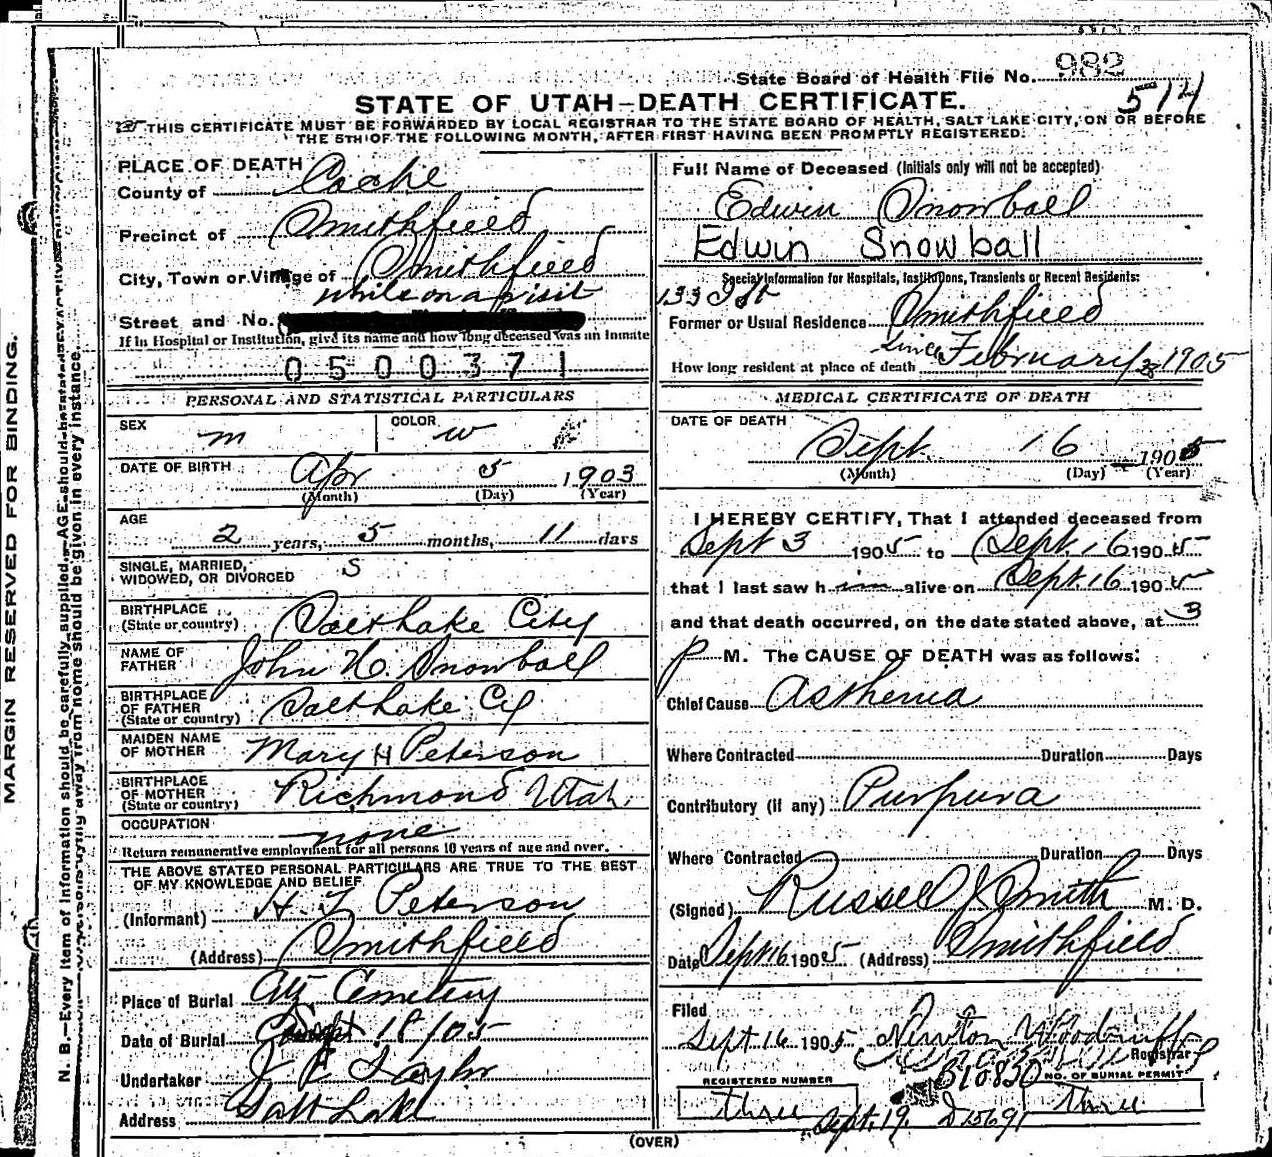 State Board of Health File No. 982
574
STATE OF UTAH—DEATH CERTIFICATE.
THIS CERTIFICATE MUST BE FORWARDED BY LOCAL REGISTRAR TO THE STATE BOARD OF HEALTH, SALT LAKE CITY, ON OR BEFORE
THE 5TH OF THE FOLLOWING MONTH, AFTER FIRST HAVING BEEN PROMPTLY REGISTERED.
MARGIN RESERVED FOR BINDING.
N. B.—Every item of information should be carefully supplied. AGE should
away from home should be given in every instance.
PLACE OF DEATH
County of Cache
Precinct of Smithfield
City, Town or Village of Smithfield
while on a visit
Street and No.
If in Hospital or Institution, give its name and how long deceased was an inmate
0500371
PERSONAL AND STATISTICAL PARTICULARS
SEX m COLOR w
DATE OF BIRTH Apr 5 1903
(Month) (Day) (Year)
AGE
2 years, 5 months, 11 days
SINGLE, MARRIED, WIDOWED, OR DIVORCED S
BIRTHPLACE (State or country) Salt Lake City
NAME OF FATHER John H. Snowball
BIRTHPLACE OF FATHER (State or country) Salt Lake Cy
MAIDEN NAME OF MOTHER Mary H Peterson
BIRTHPLACE OF MOTHER (State or country) Richmond Utah
OCCUPATION none
Return remunerative employment for all persons 10 years of age and over.
THE ABOVE STATED PERSONAL PARTICULARS ARE TRUE TO THE BEST
OF MY KNOWLEDGE AND BELIEF
(Informant) Peterson
(Address) Smithfield
Place of Burial City Cemetery
Date of Burial 18/05
Undertaker J E Taylor
Address Salt Lake
Full Name of Deceased (Initials only will not be accepted)
Edwin Snowball
Edwin Snowball
Special Information for Hospitals, Institutions, Transients or Recent Residents:
133
Former or Usual Residence Smithfield
How long resident at place of death since February 1905
MEDICAL CERTIFICATE OF DEATH
DATE OF DEATH
Sept. 16 1905
(Month) (Day) (Year)
I HEREBY CERTIFY, That I attended deceased from
Sept 3 1905 to Sept. 16 1905
that I last saw him alive on Sept. 16 1905
and that death occurred, on the date stated above, at 3
P M. The CAUSE OF DEATH was as follows:
Chief Cause Asthenia
Where Contracted Duration Days
Contributory (if any) Purpura
Where Contracted Duration Days
(Signed) Russell J Smith M. D.
Date Sept 16 1905 (Address) Smithfield
Filed
Sept 16 1905 Newton Woodruff
Registrar
B18830
REGISTERED NUMBER three
NO. OF BURIAL PERMIT three
Sept. 19. D15691
(OVER)